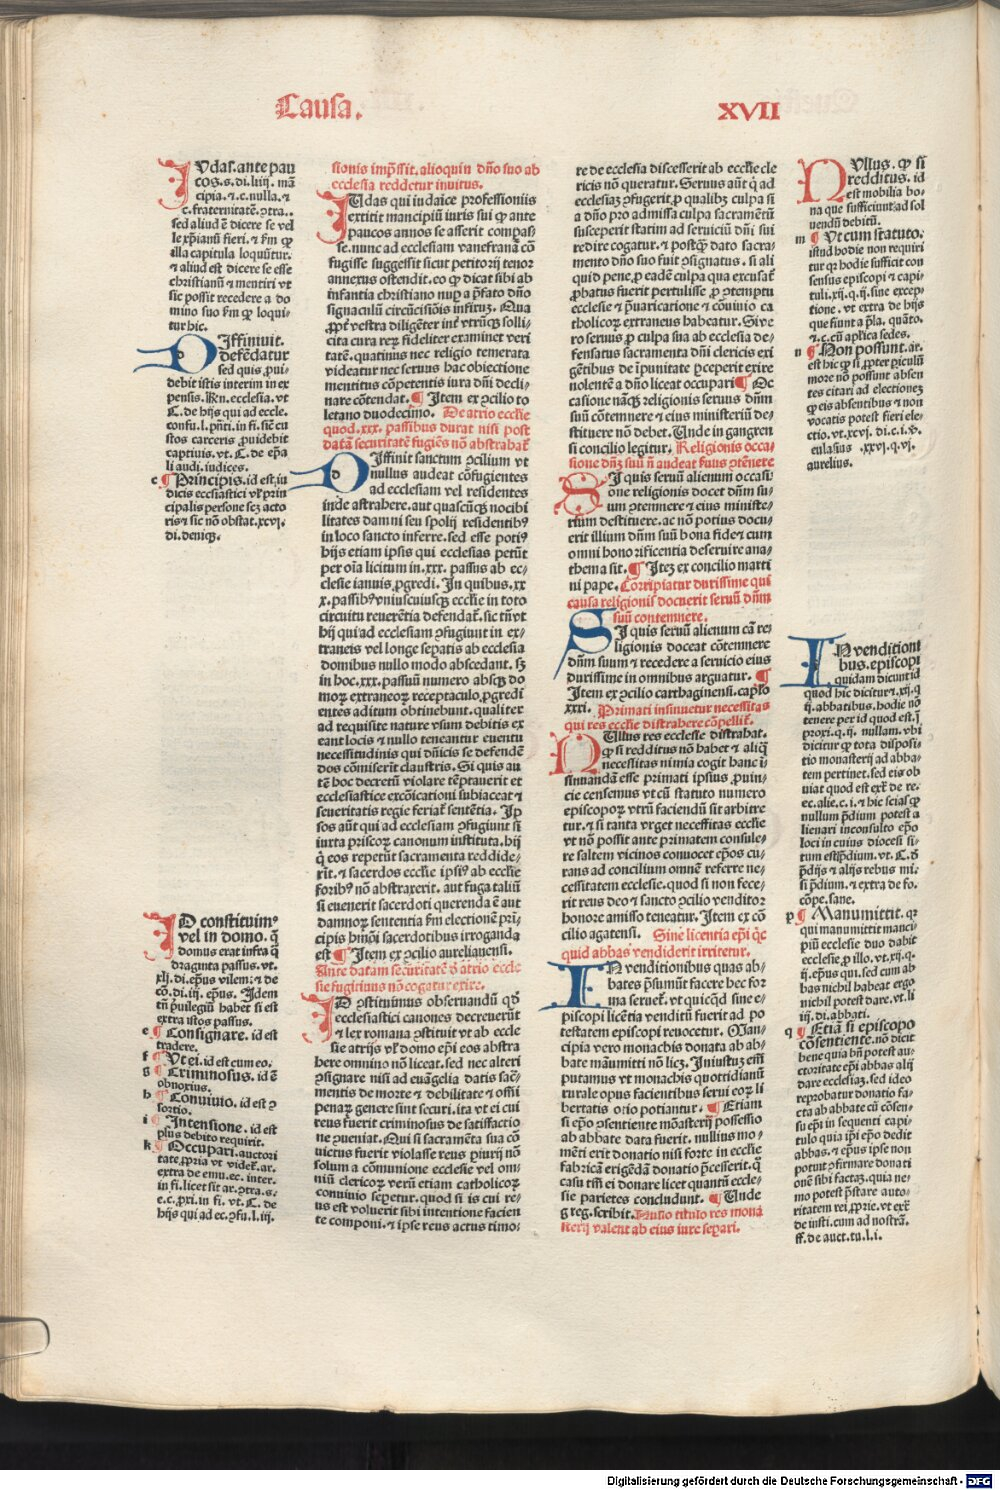 Causa.
XVII
IVdas. ante pau
cos. s. di. liiij. mā
cipia. ⁊ c. nulla. ⁊
c. fraternitatē. ꝯtra..
sed aliud ē dicere se vel
le xp̄ianū fieri. ⁊ ẜm ꝙ
illa capitula loquūtur.
⁊ aliud est dicere se esse
christianū ⁊ mentiri vt
sic possit recedere a do
mino suo ẜm ꝙ loqui-
tur hic.
DIffiniuit.
defēdatur
sed quis ꝓui-
debit istis interim in ex
pensis. Rn̄. ecclesia. vt
C. de hijs qui ad eccle.
confu. l. pn̄ti. in fi. siē cu
stos carceris ꝓuidebit
captiuis. vt. C. de ep̄a
li audi. iudices.
c ¶ Principis. id est, iu
dicis ecclsiastici vl̓ prin
cipalis persone scꝫ acto
ris ⁊ sic nō obstat. xcvi.
di. deniqꝫ.
ID constituim⁹
vel in domo. q̄
domus erat infra q̄
draginta passus. vt.
xlj. di. ep̄us vilem: ⁊ de
cō. di. iij. ep̄us. Idem
tn̄ p̄uilegiū habet si est
extra istos passus.
e ¶ Consignare. id est
tradere.
f ¶ Vt ei. id est cum eo.
g ¶ Criminosus. id ē
obnoxius.
h ¶ Conuiuio. id est ꝯ
sortio.
i ¶ Intensione. id est
plus debito requirit.
k ¶ Occupari. auctori
tate ꝓpria vt videt̄. ar.
extra de emu. ec. inter.
in fi. licet sit ar. ꝯtra. s.
e. c. ꝓxi. in fi. vt. C. de
hijs qui ad ec. ꝯfu. l. iij.
sionis imp̄ssit. alioquin dn̄o suo ab
ecclesia reddetur inuitus.
IUdas qui iudaice professionis
extitit mancipiū iuris sui ꝙ ante
paucos annos se asserit compas-
se. nunc ad ecclesiam vanefranā cō
fugisse suggessit sicut petitorij tenor
annexus ostendit. eo ꝙ dicat sibi ab
infantia christiano nuꝑ a p̄fato dn̄o
signaculū circūcisiōis infixū. Qua
ꝓpt̄ vestra diligēter int̄ vtrūqꝫ solli-
cita cura reꝝ fideliter examinet veri
tatē. quatinus nec religio temerata
videatur nec seruus hac obiectione
mentitus cōpetentis iura dn̄i decli-
nare cōtendat. ¶ Item ex ꝯcilio to
letano duodecīmo. De atrio eccl̄ie
quod. xxx. passibus durat nisi post
datā securitatē fugiēs nō abstrahat̄
DIffinit sanctum ꝯcilium vt
nullus audeat cōfugientes
ad ecclesiam vel residentes
inde astrahere. aut quascūqꝫ nocibi
litates damni seu spolij residentib⁹
in loco sancto inferre. sed esse poti⁹
hijs etiam ipsis qui ecclesias petūt
per oīa licitum in. xxx. passus ab ec-
clesie ianuis ꝓgredi. In quibus. xx
x. passib⁹ vniuscuiusqꝫ eccl̄ie in toto
circuitu reuerētia defendat̄. sic tn̄ vt
hij qui ad ecclesiam ꝯfugiunt in ex-
traneis vel longe seꝑatis ab ecclesia
domibus nullo modo abscedant. sꝫ
in hoc. xxx. passuū numero absqꝫ do
moꝝ extraneoꝝ receptaculo. ꝓgredi
entes aditum obtinebunt. qualiter
ad requisite nature vsum debitis ex
eant locis ⁊ nullo teneantur euentu
necessitudinis qui dn̄icis se defendē
dos cōmiserīt claustris. Si quis au
tē hoc decretū violare tēptauerit et
ecclesiastice excōicationi subiaceat ⁊
seueritatis regie feriat̄ sentētia. Ip
sos aūt qui ad ecclesiam ꝯfugiunt si
iuxta priscoꝝ canonum instituta. hij
q̇ eos repetūt sacramenta reddide-
rīt. ⁊ sacerdos eccl̄ie ipsi⁹ ab eccl̄ie
forib⁹ nō abstraxerit. aut fuga taliū
si euenerit sacerdoti querenda ē aut
damnoꝝ sententia ẜm electionē prī-
cipis hmōi sacerdotibus irroganda
est ¶ Item ex ꝯcilio aurelianensi.
Ante datam securitatē d̓ atrio eccle
sie fugitiuus nō cogatur exire.
ID ꝯstituimus obseruandū qd̓
ecclesiastici canones decreuerūt
⁊ lex romana ꝯstituit vt ab eccle
sie atrijs vl̓ domo ep̄i eos abstra
here omnino nō liceat. sed nec alteri
ꝯsignare nisi ad euāgelia datis sac̄-
mentis de morte ⁊ debilitate ⁊ om̄i
penaꝝ genere sint securi. ita vt ei cui
reus fuerit criminosus de satisfactio
ne ꝯueniat. Qui si sacramēta sua cō
uictus fuerit violasse reus ꝑiurij nō
solum a cōmunione ecclesie vel om-
niū clericoꝝ verū etiam catholicoꝝ
conuiuio seꝑetur. quod si is cui re-
us est voluerit sibi intentione facien
te componi. ⁊ ip̄se reus actus timo-
re de ecclesia discesserit ab eccl̄ie cle
ricis nō queratur. Seruus aūt q̇ ad
ecclesiaꝫ ꝯfugerit ꝓ qualibꝫ culpa si
a dn̄o pro admissa culpa sacramētū
susceperit statim ad seruiciū dn̄i sui
redire cogatur. ⁊ postq̄ꝫ dato sacra-
mento dn̄o suo fuit ꝯsignatus. si ali
quid pene. ꝓ eadē culpa qua excusat̄
ꝓbatus fuerit pertulisse. ꝓ ꝯtemptu
ecclesie ⁊ p̄uaricatione ⁊ cōuiuio ca
tholicoꝝ extraneus habeatur. Siue
ro seruus ꝓ culpa sua ab ecclesia de-
fensatus sacramenta dn̄i clericis exi
gētibus de īpunitate ꝑceperit exire
nolentē a dn̄o liceat occupari ¶ Oc
casione nāqꝫ religionis seruus dn̄m
suū cōtemnere ⁊ eius ministeriū de-
stituere nō debet. Unde in gangren
si concilio legitur. Religionis occa-
sione dn̄ꝫ suū n̄ audeat ẜuus ꝯtēnere
SI quis seruū alienum occasi-
one religionis docet dn̄m su-
um ꝯtemnere ⁊ eius ministe-
rium destituere. ac nō potius docu-
erit illium dn̄m suū bona fide ⁊ cum
omni honorificentia deseruire ana-
thema sit. ¶ Iteꝫ ex concilio marti
ni pape. Corripiatur durissime qui
causa religionis docuerit seruū dn̄m
suū contemnere.
SI quis seruū alienum cā re-
ligionis doceat cōtemnere
dn̄m suum ⁊ recedere a seruicio eius
durissime in omnibus arguatur. ¶
Item ex ꝯcilio carthaginensi. cap̄lo
xxxi. Primati insinuetur necessitas
qui res eccl̄ie distrahere cōpellit̄.
NUllus res ecclesie distrahat.
ꝙ si redditus nō habet ⁊ aliq̄
necessitas nimia cogit hanc ī-
sinuandā esse primati ipsius ꝓuin-
cie censemus vt cū statuto numero
episcopoꝝ vtrū faciendū sit arbitre
tur. ⁊ si tanta vrget necessitas eccl̄ie
vt nō possit ante primatem consule-
re saltem vicinos conuocet ep̄os cu-
rans ad concilium omnē referre ne-
cessitatem ecclesie. quod si non fece-
rit reus deo ⁊ sancto ꝯcilio venditor
honore amisso teneatur. Item ex cō
cilio agatensi. Sine licentia ep̄i q̄c
quid abbas vendiderit irritetur.
IN venditionibus quas ab-
bates p̄sumūt facere hec for
ma seruet̄. vt quicqd̓ sine e-
piscopi licētia venditū fuerit ad po
testatem episcopi reuocetur. Man-
cipia vero monachis donata ab ab-
bate māumitti nō licꝫ. Iniustuꝫ em̄
putamus vt monachis quottidianū
rurale opus facientibus serui eoꝝ li
bertatis ocio potiantur. ¶ Etiam
si ep̄o ꝯsentiente mōasterij possessio
ab abbate data fuerit. nullius mo-
mēti erit donatio nisi forte in eccl̄ie
fabricā erigēdā donatio p̄cesserit. q̄
casu tm̄ ei donare licet quantū eccle-
sie parietes concludunt. ¶ Unde
greg. scribit. Nullo titulo res mona
sterij valent ab eius iure seꝑari.
NUllus. ꝙ si
redditus. id
est mobilia bo-
na que sufficiunt ad sol
uendū debitū.
m ¶ Vt cum statuto.
istud hodie non requiri
tur qꝫ hodie sufficit con
sensus episcopi ⁊ capi-
tuli. xij. q. ij. sine excep-
tione. vt extra de hijs
que fiunt a p̄la. quāto.
⁊. c. cū ap̄lica sedes.
n ¶ Non possunt. ar.
est hic ꝙ si ꝓpter ꝑiculū
more nō possunt absen
tes citari ad electioneꝫ
ꝙ eis absentibus ⁊ non
vocatis potest fieri ele-
ctio. vt. xcvi. di. c. i. ⁊
eulasius .xxvi. q. vi.
aurelius.
IN venditioni
bus. episcopi
quidam dicunt id
quod hic dicitur ⁊. xij. q
ij. abbatibus. hodie nō
tenere per id quod est. ī
proxi. q. ij. nullam. vbi
dicitur ꝙ tota disposi-
tio monasterij ad abba-
tem pertinet. sed eis ob
uiat quod est ext̄ de re.
ec. alie. c. i. ⁊ hic scias ꝙ
nullum p̄dium potest a
lienari inconsulto ep̄o
loci in cuius diocesi si-
tum est p̄dium. vt. C. d̓
p̄dijs ⁊ alijs rebus mi.
si p̄dium. ⁊ extra de fo.
cōpe. sane.
p ¶ Manumittit. qꝫ
qui manumittit manci-
piū ecclesie duo dabit
ecclesie. ꝓ illo. vt. xij. q.
ij. ep̄us qui. sed cum ab
bas nichil habeat ergo
nichil potest dare. vt. li
iij. di. abbati.
q ¶ Etiā si episcopo
cōsentiente. nō dicit
bene quia bn̄ potest au-
ctoritate ep̄i abbas alij
dare ecclesiaꝫ. sed ideo
reprobatur donatio fa-
cta ab abbate cū cōsen-
su ep̄i in sequenti capi-
tulo quia ip̄i ep̄o dedit
abbas. ⁊ ep̄us ip̄se non
potuit ꝯfirmare donati
onē sibi factaꝫ. quia ne-
mo potest p̄stare auto-
ritatem rei. ꝓprie. vt ext̄
de insti. cum ad nostrā.
ff. de auct. tu. l. i.
Digitalisierung gefördert durch die Deutsche Forschungsgemeinschaft - DFG